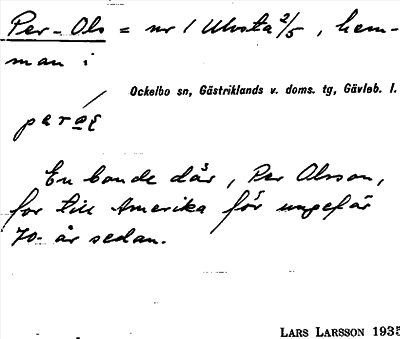 Per-Ols = nr 1 Ulvsta 2/5, hem-
man i
Ockelbo sn, Gästriklands v. doms. tg, Gävleb. l.
En bonde där, Per Olsson,
for till Amerika för ungefär
70- år sedan.
LARS LARSSON 1935